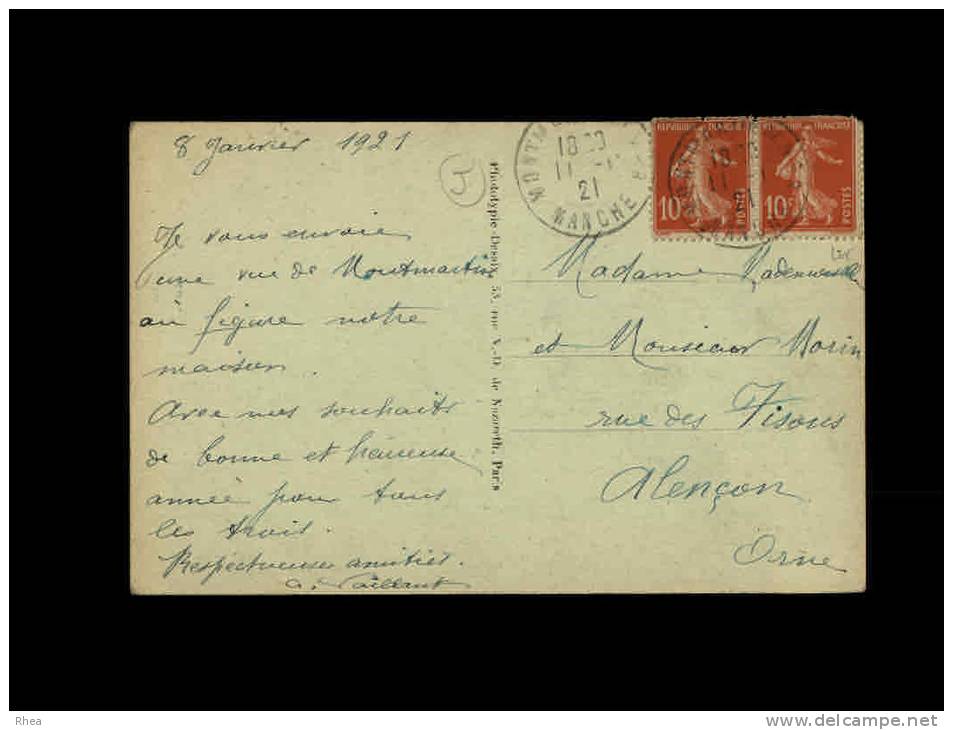 8 Janvier 1921
J
Je vous envoie
une vue de Montmartin
où figure notre
maison.
Avec mes souhaits
de bonne et heureuse
année pour tous
les trois.
Respectueuses amitiés.
A. Vaillant
Phototypie Desaix, 53, rue V.-D. de Nazareth, Paris
18
11
21
MANCHE
REPUBLIQUE FRANÇAISE
10c
POSTES
REPUBLIQUE FRANÇAISE
10c
POSTES
Madame Mademoiselle
et Monsieur Morin
rue des Tisons
Alençon
Orne
Rhea
www.delcampe.net